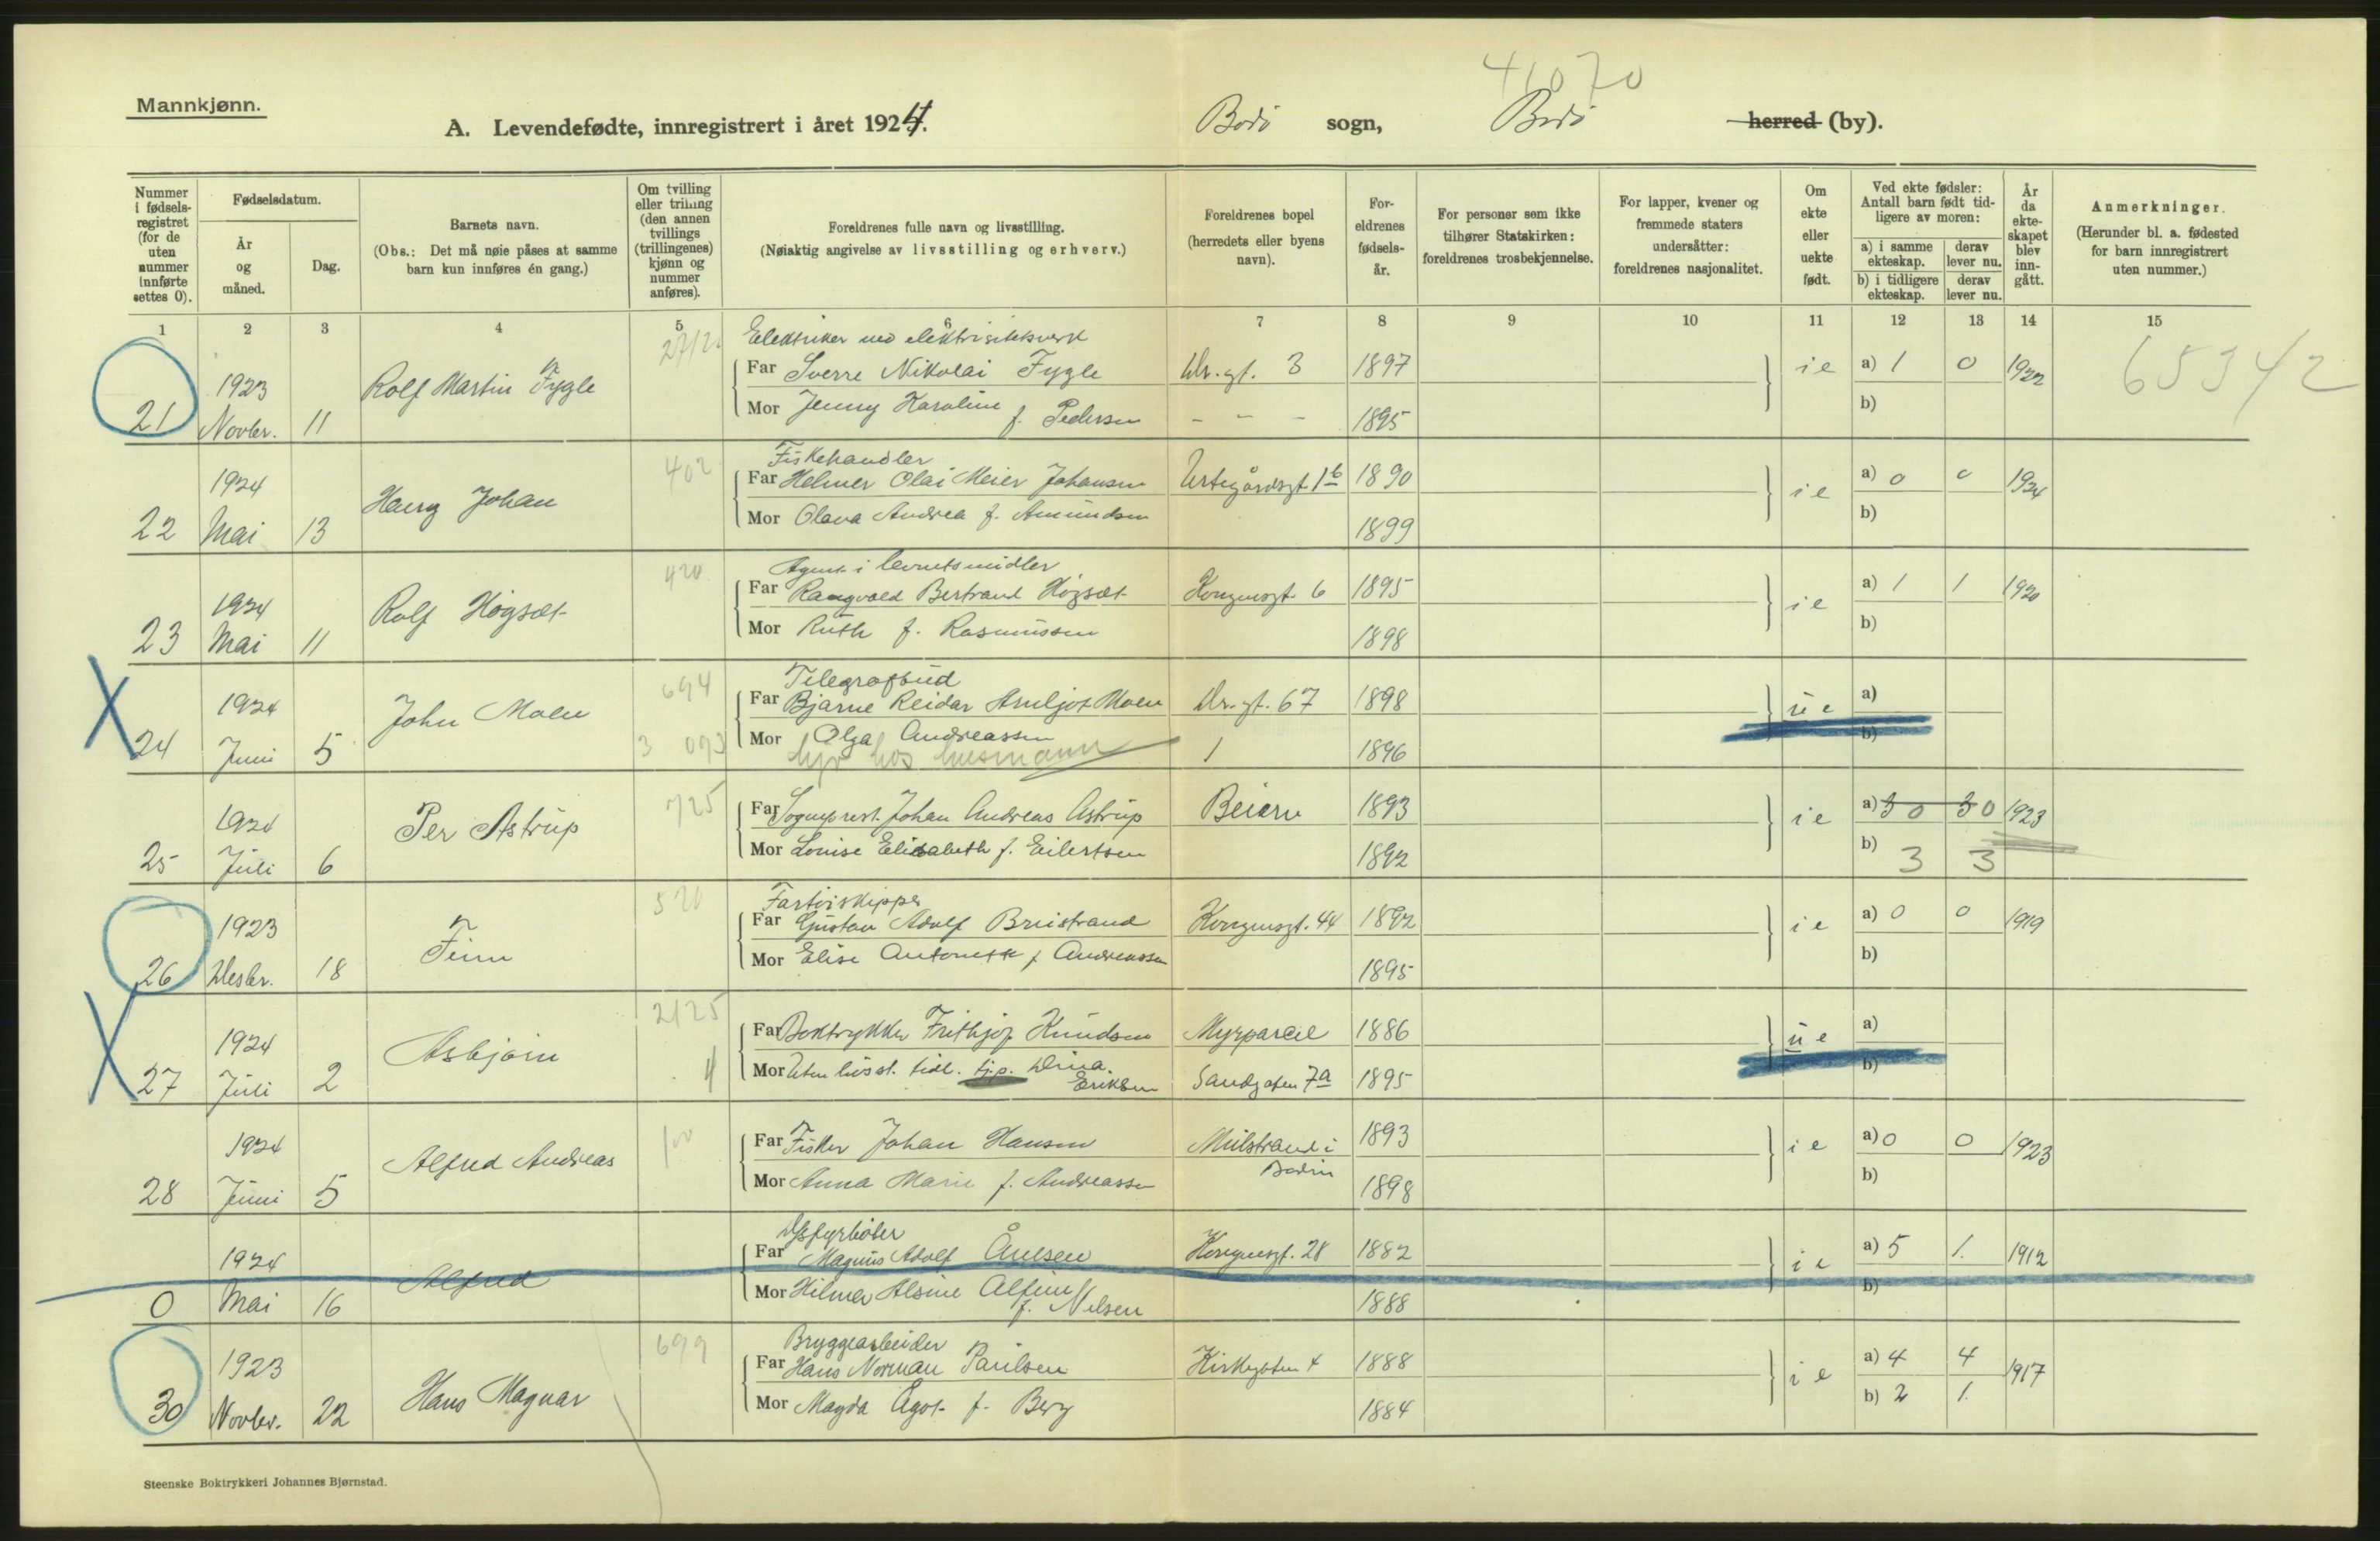 Mannkjønn.
41070
A. Levendefødte, innregistrert i året 1924.
Bodø sogn, Bodø herred (by).
Nummer i fødsels-registret (for de uten nummer innførte settes 0).
Fødselsdatum.
År og måned.
Dag.
Barnets navn.
(Obs.: Det må nøie påses at samme barn kun innføres én gang.)
Om tvilling eller trilling (den annen tvillings (trillingenes) kjønn og nummer anføres).
Foreldrenes fulle navn og livsstilling.
(Nøiaktig angivelse av livsstilling og erhverv.)
Foreldrenes bopel (herredets eller byens navn).
For-eldrenes fødsels-år.
For personer som ikke tilhører Statskirken: foreldrenes trosbekjennelse.
For lapper, kvener og fremmede staters undersåtter: foreldrenes nasjonalitet.
Om ekte eller uekte født.
Ved ekte fødsler: Antall barn født tid-ligere av moren:
a) i samme ekteskap.
derav lever nu.
b) i tidligere ekteskap.
derav lever nu.
År da ekte-skapet blev inn-gått.
Anmerkninger.
(Herunder bl. a. fødested for barn innregistrert uten nummer.)
1 2 3 4 5 6 7 8 9 10 11 12 13 14 15
Elektriker ved elektrisitetsverk
21 1923 Novbr. 11 Rolf Martin Fygle
Far Sverre Nikolai Fygle Dr. gt. 3 1897 i e a) 1 0 1922 65342
Mor Jenny Karoline f. Pedersen - - - 1895 b)
Fiskehandler
22 1924 Mai 13 Harry Johan 402
Far Helmer Olai Meier Johansen Urtegårdsgt 1b 1890 i e a) 0 0 1924
Mor Olava Andrea f. Amundsen 1899 b)
Agent i levnetsmidler
23 1924 Mai 11 Rolf Høgset 420
Far Rangvald Bertrand Høgset Kongensgt. 6 1895 i e a) 1 1 1920
Mor Ruth f. Rasmussen 1898 b)
Telegrafbud
24 1924 Juni 5 John Moen 694
Far Bjarne Reidar Arnljot Moen Dr. gt. 67 1898 u e a)
3 093 Mor Olga Andreassen 1896 b)
25 1924 Juli 6 Per Astrup 725
Far Sogneprest Johan Andreas Astrup Beiarn 1893 i e a) 3 0 3 0 1923
Mor Louise Elisabeth f. Eilertsen 1892 b) 3 3
Fartøiskipper
26 1923 Desbr. 18 Finn 520
Far Gustav Adolf Breistrand Kongensgt. 44 1892 i e a) 0 0 1919
Mor Elise Antonette f. Andreassen 1895 b)
27 1924 Juli 2 Asbjørn 2125
Far Boktrykker Frithjof Knudsen Myrparcel 1886 u e a)
4 Mor Uten livsst. tidl. tjp. Dina Eriksen Sandgaten 7a 1895 b)
28 1924 Juni 5 Alfred Andreas 100
Far Fisker Johan Hansen Mulstrand i Bodin 1893 i e a) 0 0 1923
Mor Anna Marie f. Andreassen 1898 b)
0 1924 Mai 16 Alfred
Far Magnus Adolf Åuesen Kongensgt. 28 1882 i e a) 5 1 1912
Mor Hilmer Alsine Alfine f. Nilsen 1888 b)
Bryggearbeider
30 1923 Novbr. 22 Hans Magnar 699
Far Hans Norman Paulsen Kirkegaten 4 1888 i e a) 4 4 1917
Mor Magda Ågot f. Berg 1884 b) 2 1
Steenske Boktrykkeri Johannes Bjørnstad.